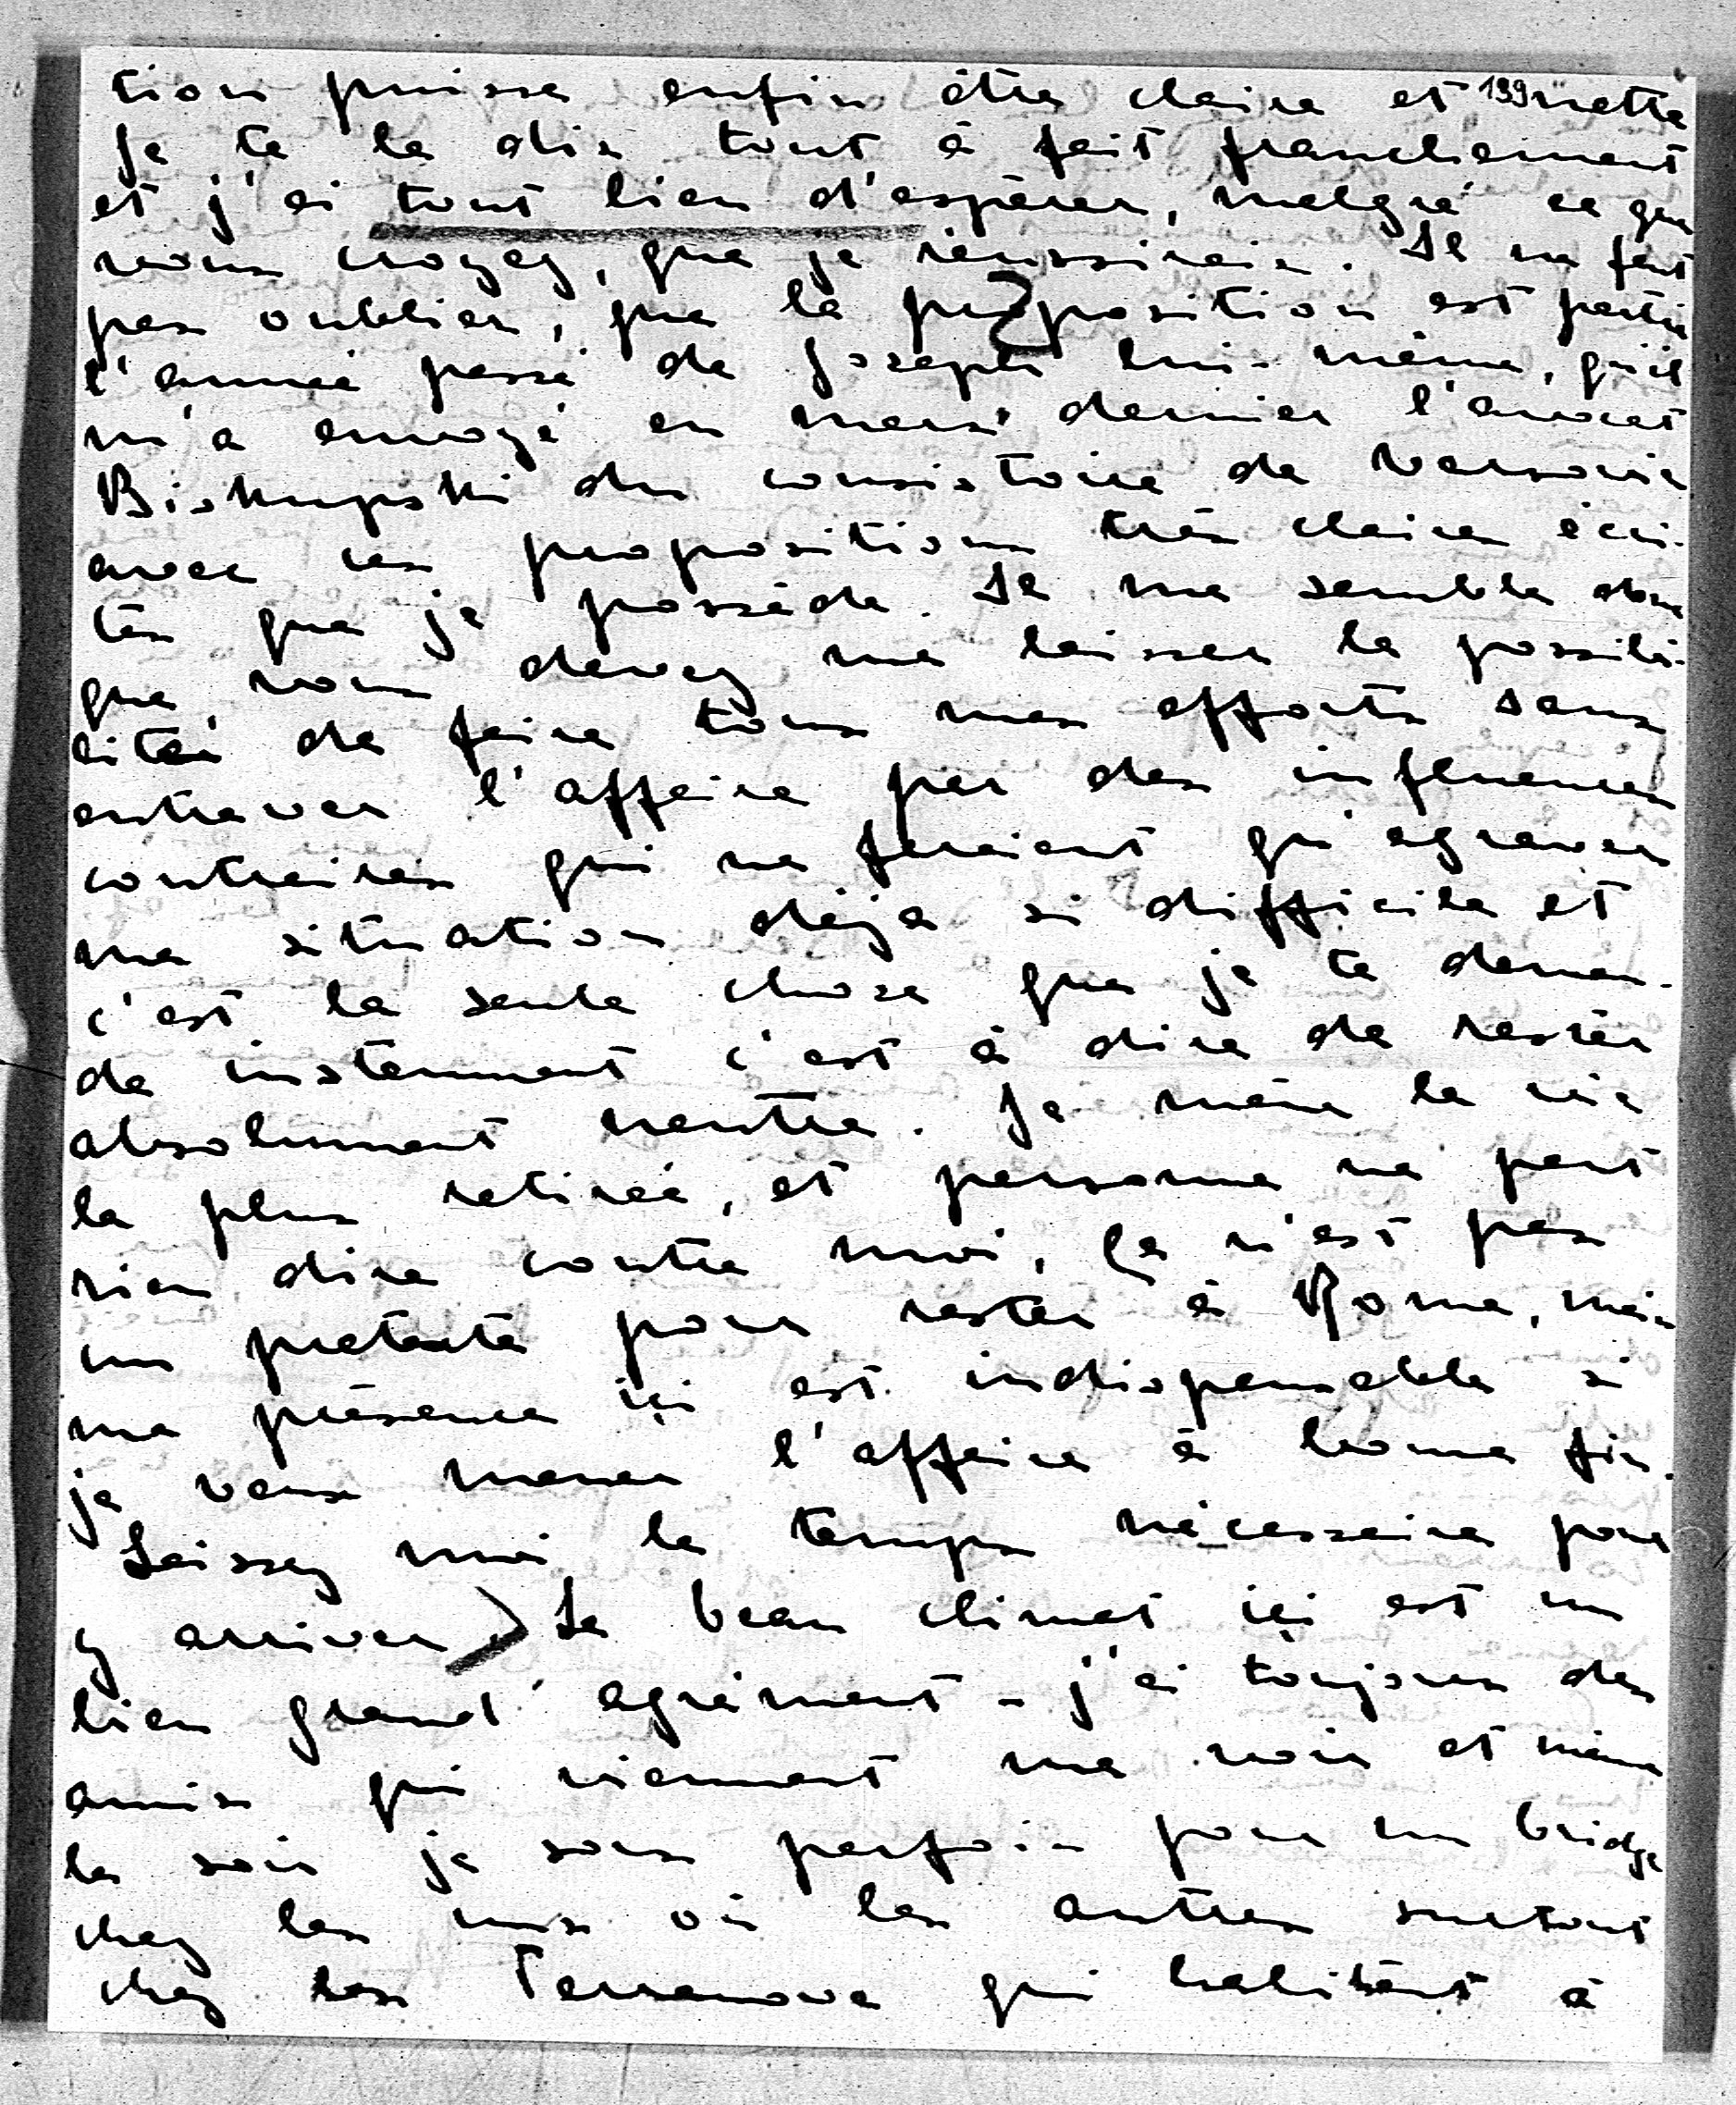 tion puisse enfin être claire et 139 nette
Je te le dis tout à fait franchement
et j'ai tout lieu d'espérer, malgré ce que
vous croyez, que je réussirais. Il ne faut
pas oublier, que la proposition est partie
l'année passé de Joseph lui-même, qu'il
m'a envoyé en mars dernier l'avocat
Biskupski du consistoire de Varsovie
avec ces propositions très claires écri-
tes que je possède. Il me semble donc
que vous devez me laisser la possibi-
lité de faire tous mes efforts sans
entraver l'affaire par des influences
contraires qui ne feraient qu'agraver
ma situation déja si difficile et
c'est la seule chose que je te deman-
de instamment c'est à dire de rester
absolument neutre. Je mène la vie
la plus retirée, et personne ne peut
rien dire contre moi, Ça n'est pas
un pretexte pour rester à Rome, mais
ma présence içi est indispensable si
je veux mener l'affaire à bonne fin.
Laissez moi le temps nécessaire pour
y arriver. Le beau climat içi est un
bien grand agrément - j'ai toujours des
amis qui viennent me voir et même
le soir je sors parfois pour un bridge
chez les uns où les autres surtout
chez les Terranova qui habitent à